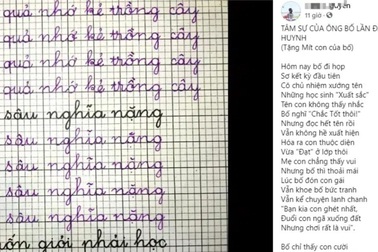 quả nhớ kẻ trồng cây
quả nhớ kẻ trồng cây
quả nhớ kẻ trồng cây
quả nhớ kẻ trồng cây
sâu nghĩa nặng
sâu nghĩa nặng
sâu nghĩa nặng
sâu nghĩa nặng
sâu nghĩa nặng
phải học
11 giờ
TÂM SỰ CỦA ÔNG BỐ LẦN Đ
HUYNH
(Tặng Mít con của bố)
Hôm nay bố đi họp
Sơ kết kỳ đầu tiên
Cô chủ nhiệm xướng tên
Những học sinh "Xuất sắc"
Tên con không thấy nhắc
Bố nghĩ "Chắc Tốt thôi!"
Nhưng đọc hết tên rồi
Vẫn không hề xuất hiện
Hóa ra con thuộc diện
Vừa "Đạt" ở lớp thôi
Mẹ con chẳng thấy vui
Nhưng bố thì thoải mái
Lúc bố đón con gái
Vẫn khoe bố bức tranh
Vẫn kể chuyện lanh chanh
"Bạn kia con ghét nhất,
Đuổi con ngã xuống đất
Nhưng chơi rất là vui".
Bố chỉ thấy con cười